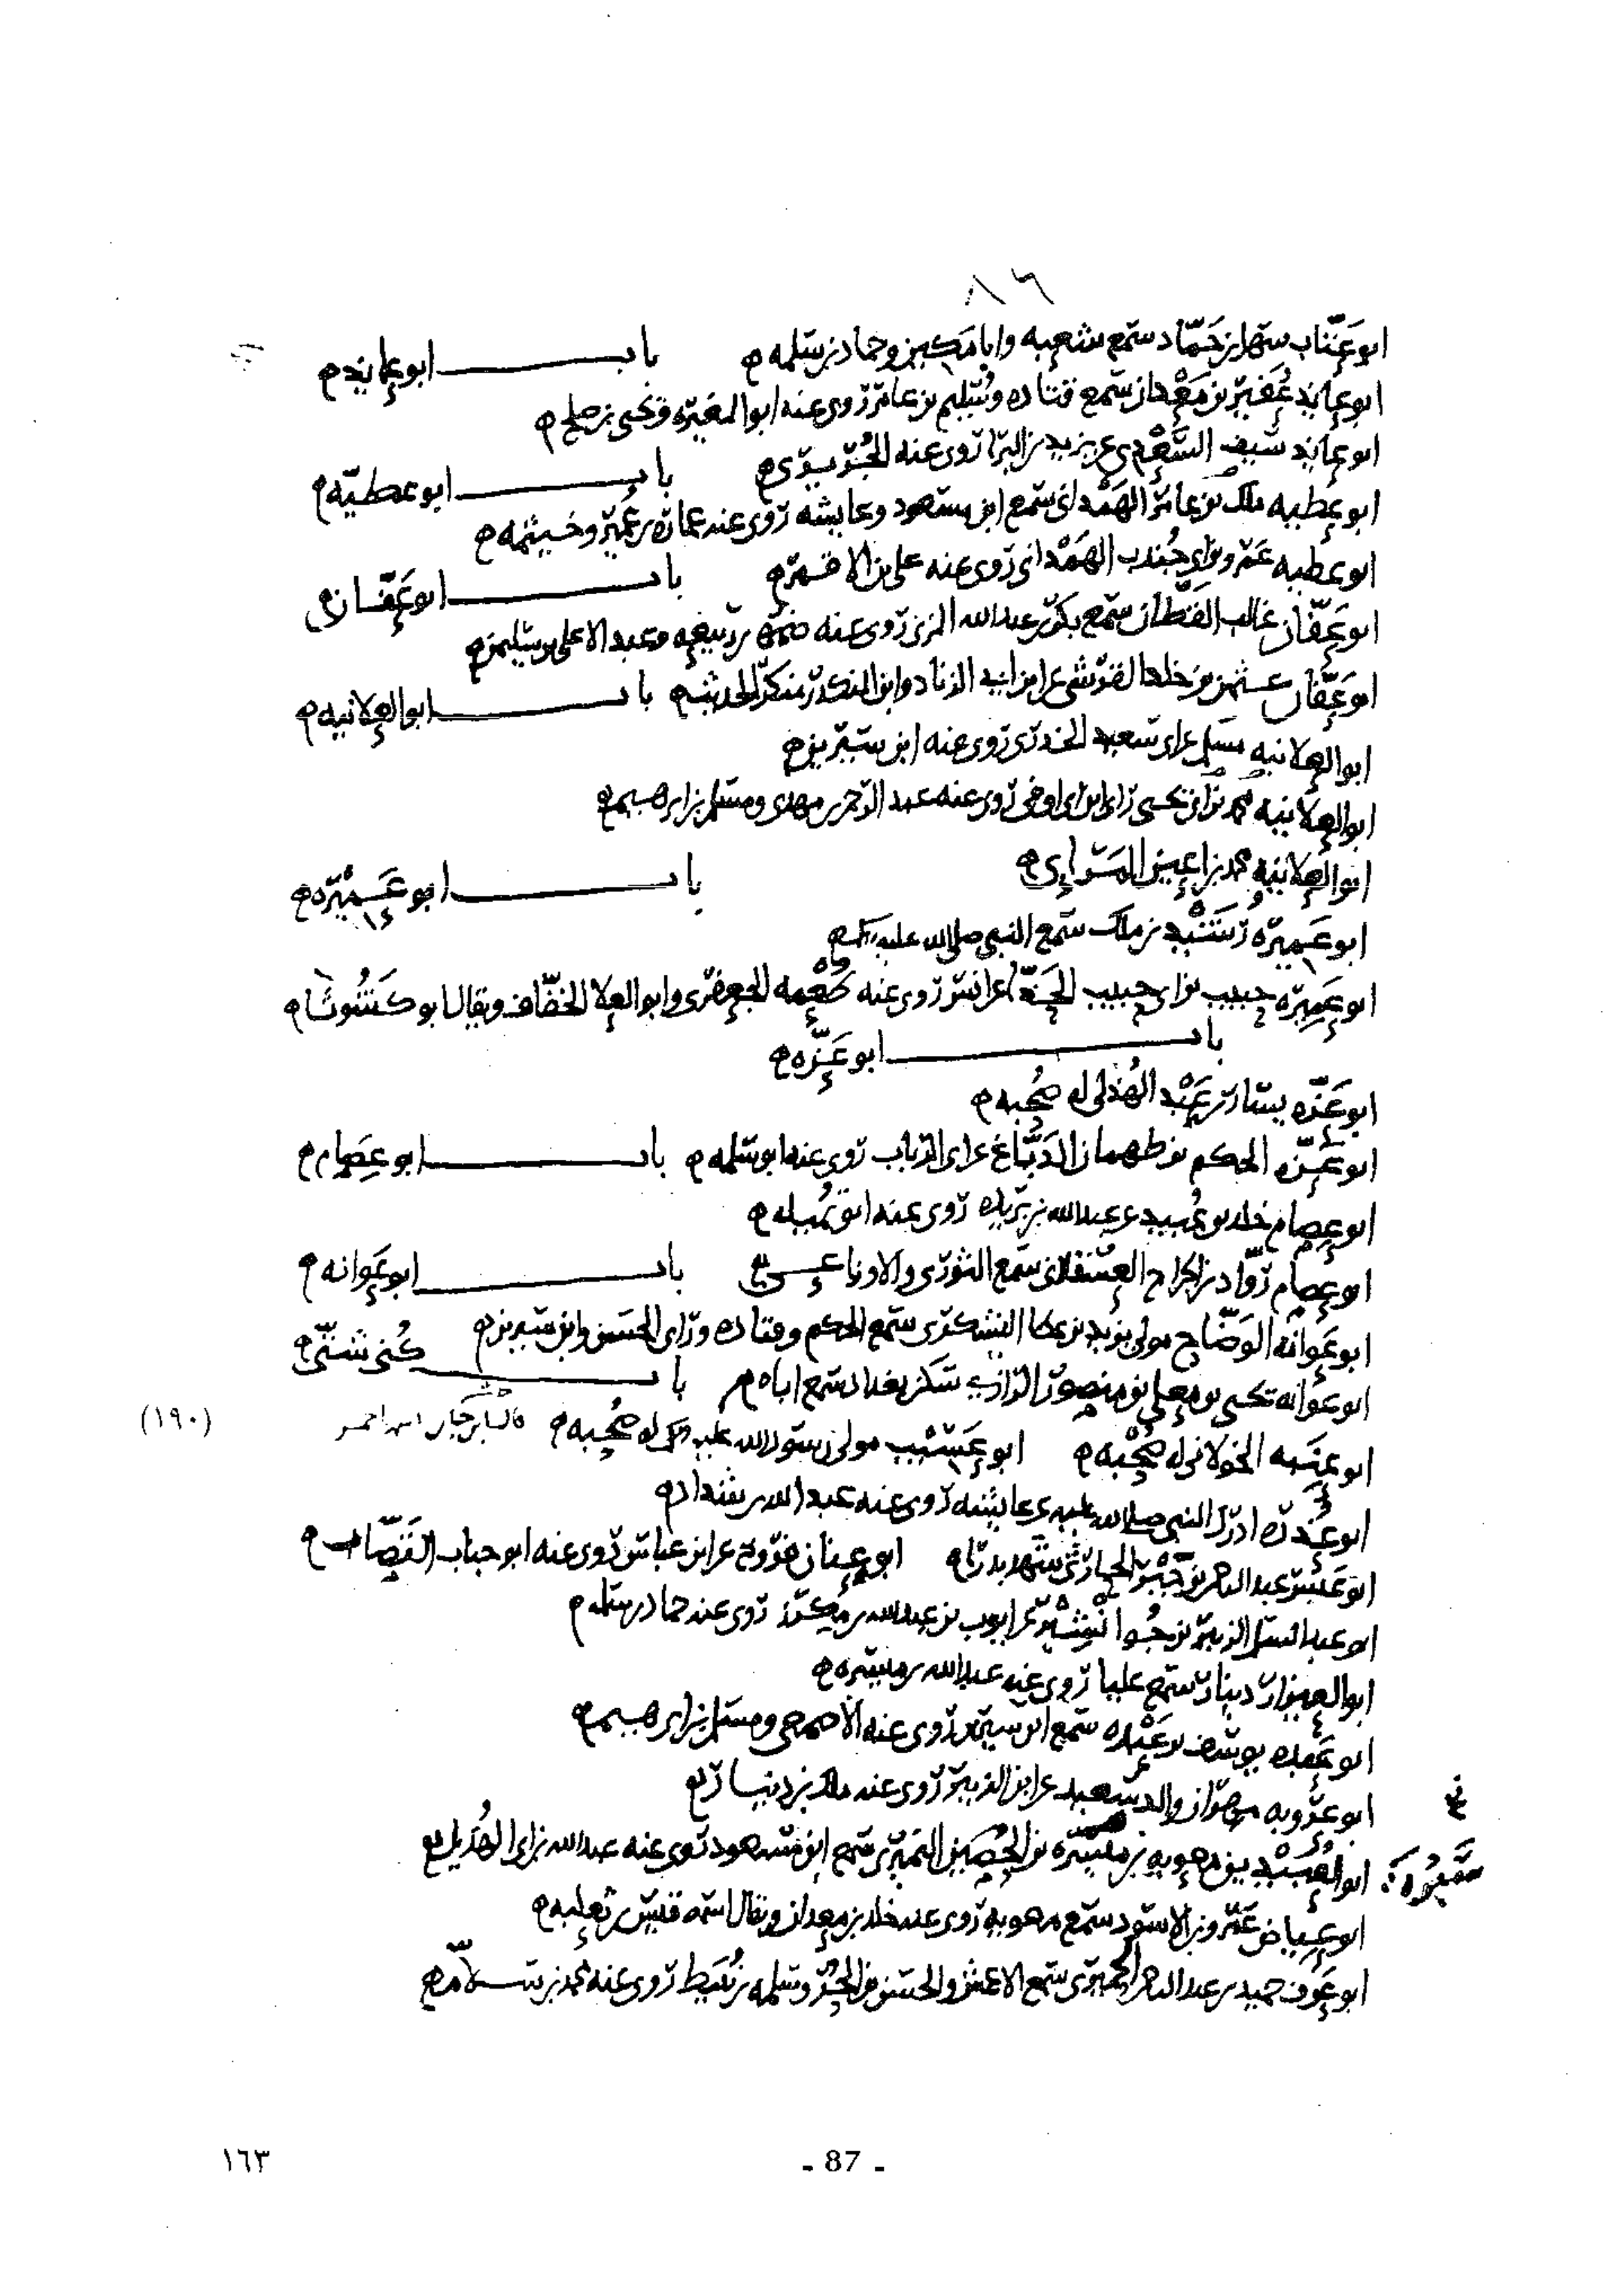 ٨٦
ابو عَتّاب سهل بن حَمّاد سمع شعبه وابا مكين وحماد بن سلمه باب ابو عايذ
ابو عايذ عُفَير بن مَعْدان سمع قتاده وسُليم بن عامر روى عنه ابو المغيره ويحيى بن صلح
ابو عايذ سيف السَّعْدي عن يزيد بن البرا روى عنه الجُرَيري باب ابو عطيّه
ابو عطيه ملك بن عامر الهَمْداني سمع ابن مسعود وعايشه روى عنه عماره بن عُمَير وخيثمه
ابو عطيه عمرو بن ابي جُندب الهَمْداني روى عنه علي بن الاقمر باب ابو عَفّان
ابو عَفّان غالب القَطّان سمع بكر بن عبد الله المزني روى عنه ضمره بن ربيعه وعبد الاعلى بن سليمن
ابو عَفّان عثمن بن خلد القرشي عن ابن ابي الزناد وابن المنكدر منكر الحديث باب ابو العلانيه
ابو العلانيه مسلم عن ابي سعيد الخدري روى عنه ابن سيرين
ابو العلانيه محمد بن ابي يحيى راى ابن ابي اوفى روى عنه عبد الرحمن بن مهدي ومسلم بن ابرهيم
ابو العلانيه محمد بن اعين المَرَايي باب ابو عَميْره
ابو عَميره رُشَيْد بن ملك سمع النبي صلى الله عليه
ابو عَمِيره حبيب بن ابي حبيب عن انس روى عنه طُعْمه الجعفري وابو العلا الخفّاف ويقال ابو كَشُوثا
باب ابو عَزّه
ابو عَزّه يسار بن عَبْد الهُذلي له صُحْبه
ابو عَزّه الحكم بن طهمان الدَبّاغ عن ابي الرباب روى عنه ابو سلمه باب ابو عِصام
ابو عِصام خلد بن عُبيد عن عبد الله بن بريده روى عنه ابو تُميله
ابو عِصام روّاد بن الجراح العسقلاني سمع الثوري والاوزاعي باب ابو عَوانه
ابو عَوانه الوَضّاح مولى يزيد بن عطا اليشكري سمع الحكم وقتاده وراى الحسن وابن سيرين
ابو عوانه يحيى بن معلى بن منصور الرازي سكن بغداد سمع اباه باب كُنى شتّى
ابو عنبه الخولاني له صُحْبه ابو عَسِيْب مولى رسول الله عليه له صُحْبه (١٩٠)
ابو عُذره ادرك النبي صلى الله عليه عن عايشه روى عنه عبد الله بن شداد
ابو عَبْس عبد الرحمن بن جَبْر الحارثي شهد بدرًا ابو عِنان فروخ عن ابن عباس روى عنه ابو حباب القَصّاب
ابو عبد السلم الزبير بن جُوا تْشِير عن ايوب بن عبد الله بن مِكرَز روى عنه حماد بن سلمه
ابو العيزار دينار سمع عليا روى عنه عبد الله بن ميسره
ابو عَبْده يوسف بن عَبْده سمع ابن سيرين روى عنه الاصمعي ومسلم بن ابرهيم
ابو عَرُوبه مهران والد سعيد عن ابن الزبير روى عنه ملك بن دينار
ابو العُبَيْدَين معويه بن سَبْره بن الحُصَين النُمَيري سمع ابن مسعود روى عنه عبد الله بن ابي الهُذيل
سَبْرَه
ابو عِياض عَمْرو بن الاسود سمع معويه روى عنه خلد بن معدان ويقال اسمه قيس بن ثعلبه
ابو عَوف حميد بن عبد الرحمن سمع الاعمش والحسن بن الحُرّ وسلمه بن نُبَيط روى عنه محمد بن سلام
١٦٣
- 87 -